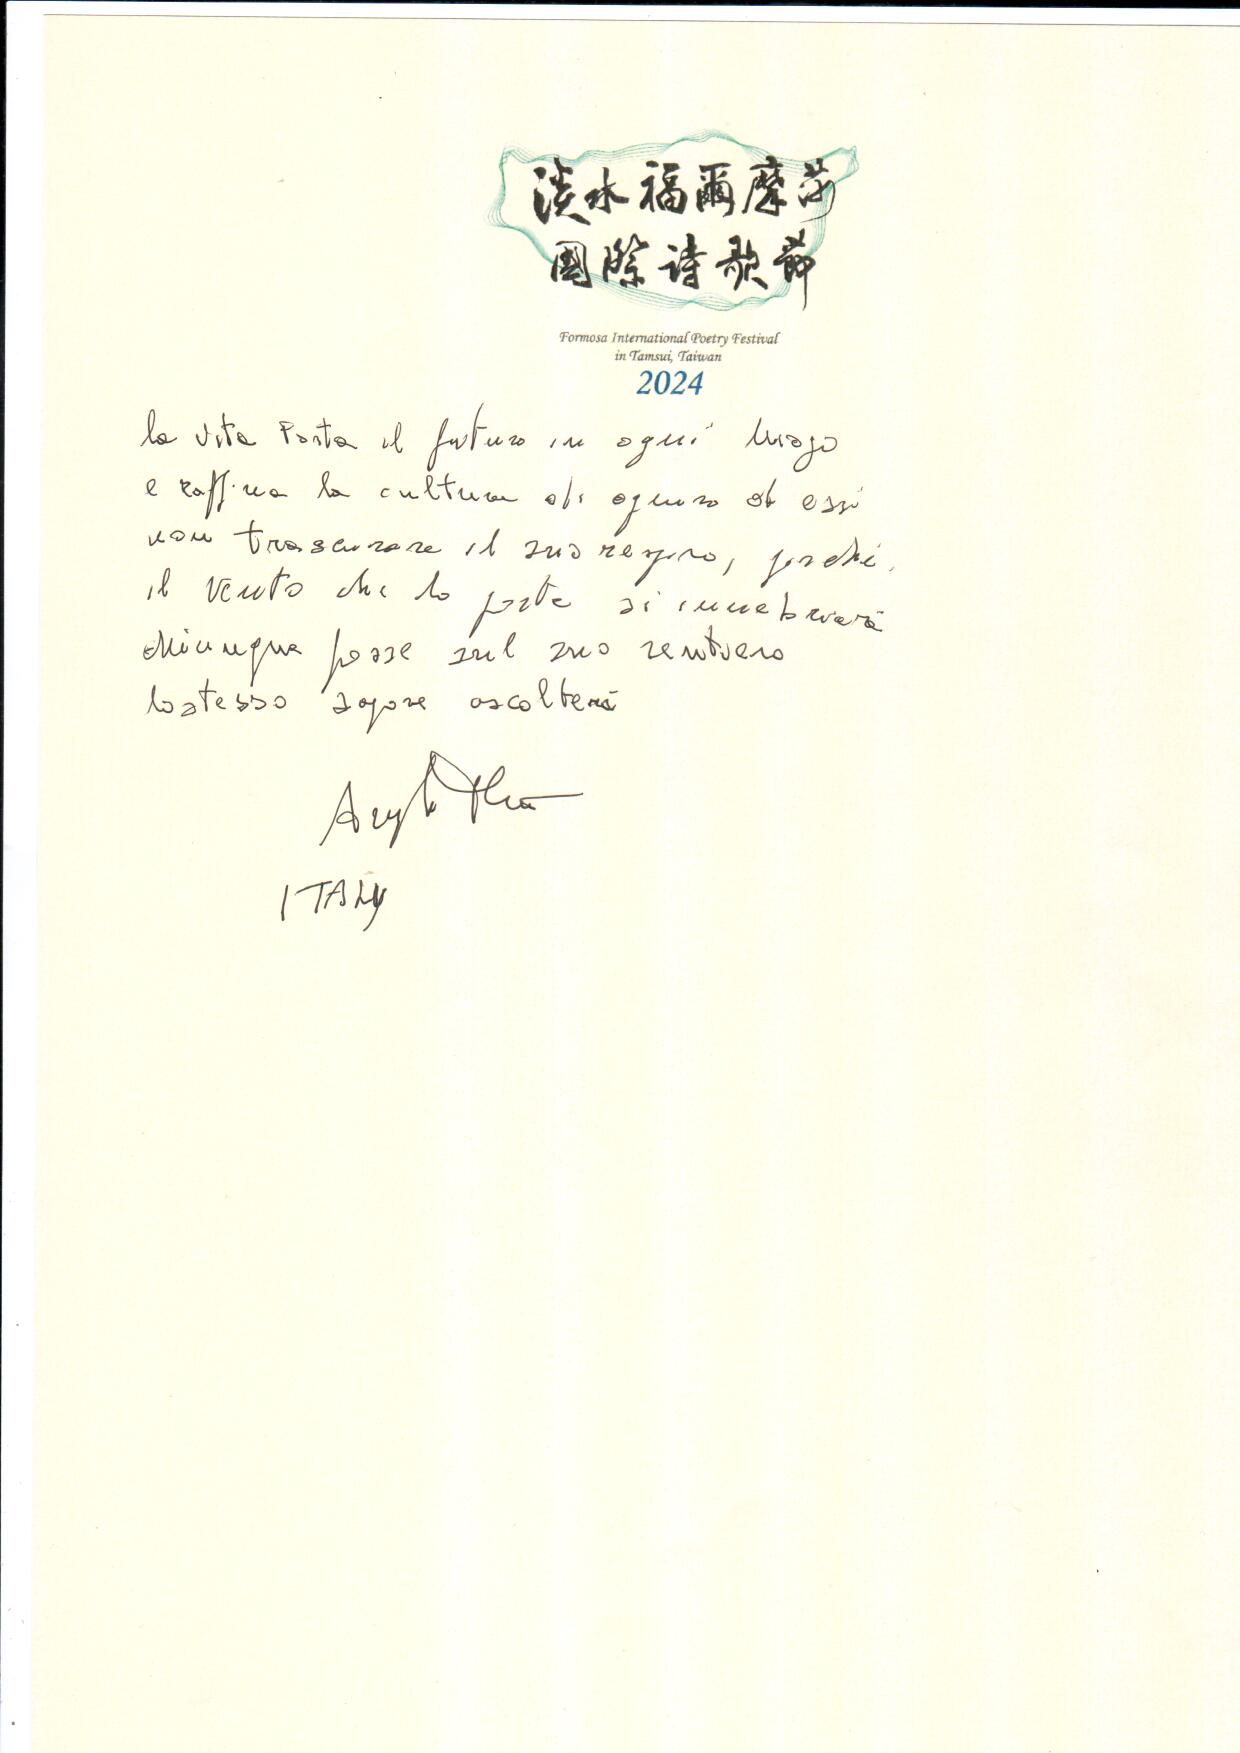 淡水福爾摩莎
國際詩歌節
Formosa International Poetry Festival
in Tamsui, Taiwan
2024
la vita Porta il futuro in ogni luogo
e raffina la cultura di ognuno di essi
non trascurare il suo respiro, perché,
il vento che lo porta si innebrierà
chiunque passe sul suo sentiero
lostesso sapore ascolterà
ITALY